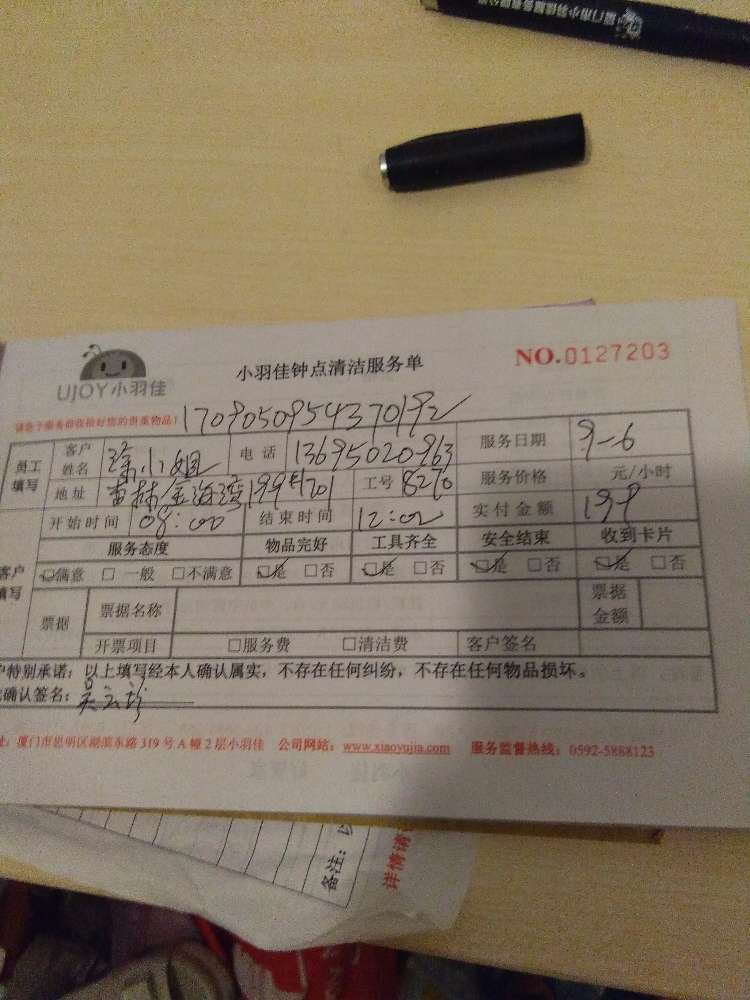 厦门市小羽佳
UJOY小羽佳
小羽佳钟点清洁服务单
NO.0127203
请您于服务前收检好您的贵重物品！
1709050954370192
员工填写 客户姓名 徐小姐 电话 13695020963 服务日期 9-6
地址 金海湾 工号 8270 服务价格 元/小时
开始时间 08:00 结束时间 12:00 实付金额 199
服务态度 物品完好 工具齐全 安全结束 收到卡片
客户填写 ☑满意 □一般 □不满意 ☑是 □否 ☑是 □否 ☑是 □否 ☑是 □否
票据 票据名称 票据金额
开票项目 □服务费 □清洁费 客户签名
户特别承诺：以上填写经本人确认属实，不存在任何纠纷，不存在任何物品损坏。
确认签名：吴云珍
址：厦门市思明区湖滨东路319号A幢2层小羽佳 公司网站：www.xiaoyujia.com 服务监督热线：0592-5888123
备注：以
详情请